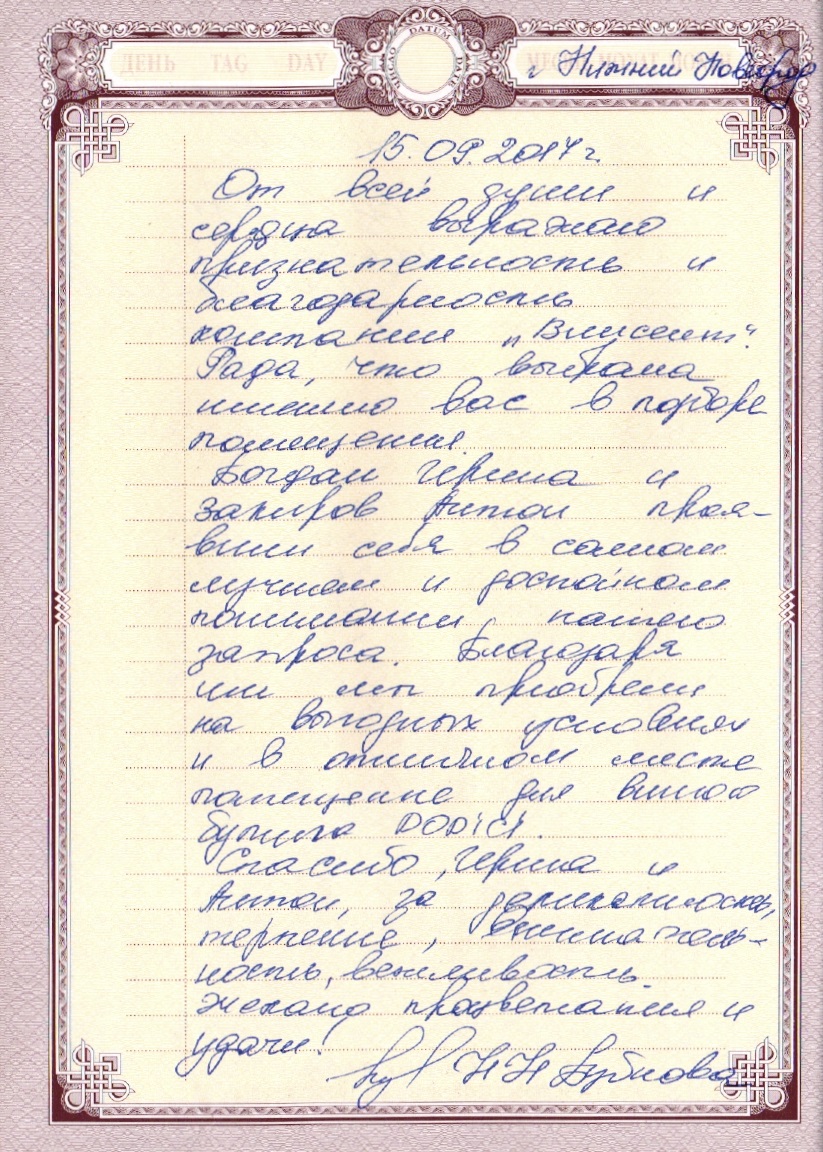 ДЕНЬ TAG DAY
DATUM
DATE
г Нижний Новгород
15.09.2017 г.
От всей души и
сердца выражаю
признательность и
благодарность
компании „Вписент".
Рада, что выбрала
именно вас в подборе
помещения.
Богдан Ирина и
Закиров Антон проя-
вили себя в самом
лучшем и достойном
понимании нашего
запроса. Благодаря
им мы приобрели
на выгодных условиях
и в отличном месте
помещение для винного
бутика DODICI.
Спасибо, Ирина и
Антон, за деликатность,
терпение, вниматель-
ность, вежливость.
Желаю процветания и
удачи!
Н Н